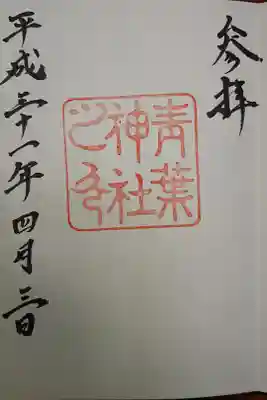 参拝
青葉
神社
之印
平成三十一年四月三日